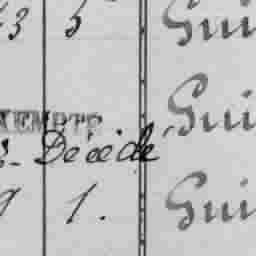 3 5 Gui
EXEMPTÉ Gui
Décédé
9 1. Gui